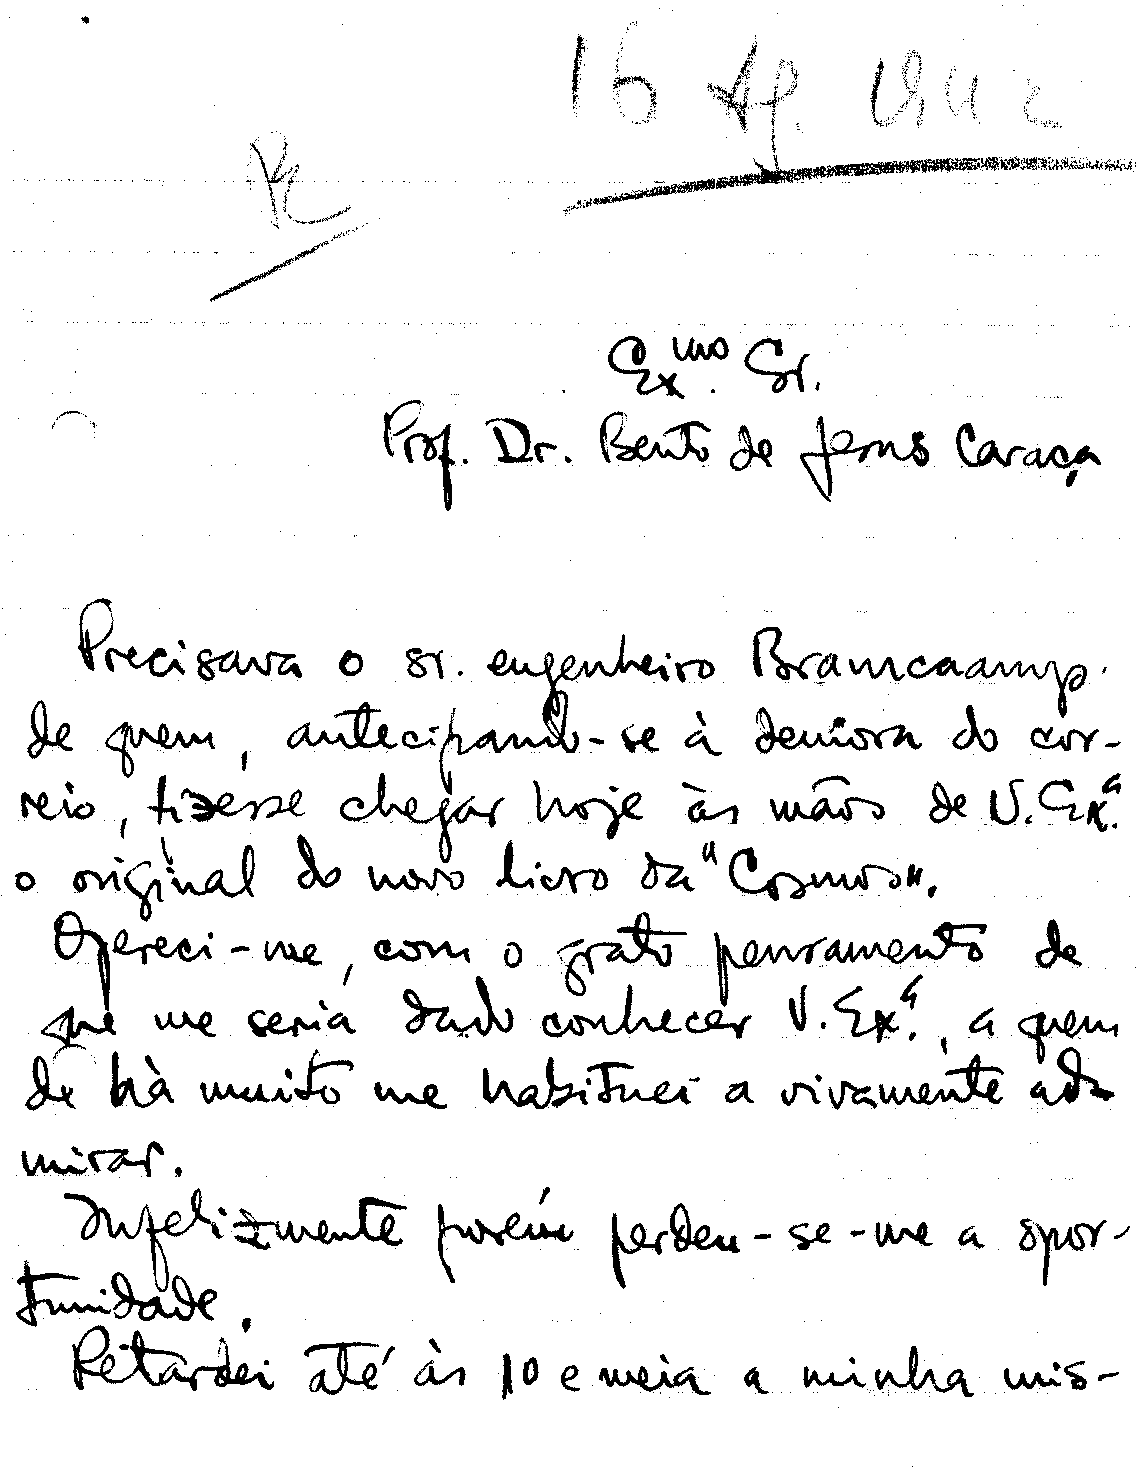 16 Ag. 1942
R
Ex.mo Sr.
Prof. Dr. Bento de Jesus Caraça
Precisava o sr. engenheiro Bramcaamp
de quem, antecipando-se à demora do cor-
reio, fizesse chegar hoje às mãos de V. Ex.ª
o original do novo livro da "Cosmos".
Ofereci-me, com o grato pensamento de
que me seria dado conhecer V. Ex.ª, a quem
de há muito me habituei a vivamente ad-
mirar.
Infelizmente porém perdeu-se-me a opor-
tunidade.
Retardei até às 10 e meia a minha mis-